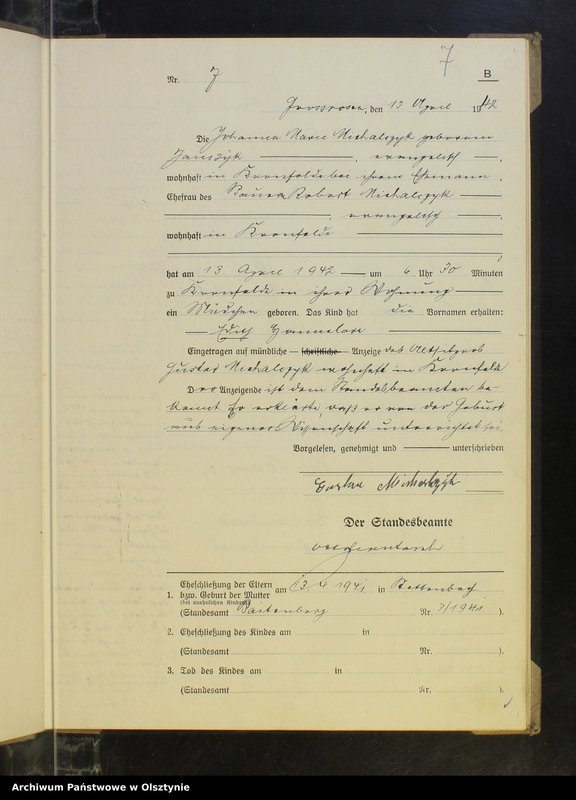 7
B
Nr. 7
Grossrosen, den 13. April 1942
Die Johanna Marie Michalczyk geborene
evangelisch
wohnhaft in Kornfelde bei ihrem Ehemann
Ehefrau des Bauern Robert Michalczyk
evangelisch
wohnhaft in Kornfelde
hat am 13. April 1942 um 6 Uhr 30 Minuten
zu Kornfelde in ihrer Wohnung
ein Mädchen geboren. Das Kind hat die Vornamen erhalten:
Edith Hannelore
Eingetragen auf mündliche schriftliche Anzeige des Altsitzers
Gustav Michalczyk wohnhaft in Kornfelde
Der Anzeigende ist dem Standesbeamten be-
kannt. Er erklärte, daß er von der Geburt
aus eigener Wissenschaft unterrichtet sei.
Vorgelesen, genehmigt und unterschrieben
Gustav Michalczyk
Der Standesbeamte
Eheschließung der Eltern
1. bzw. Geburt der Mutter am 13.4.1941 in
(bei unehelichen Kindern)
(Standesamt Nr. 3/1941 ).
2. Eheschließung des Kindes am in
(Standesamt Nr. ).
3. Tod des Kindes am in
(Standesamt Nr. ).
Archiwum Państwowe w Olsztynie